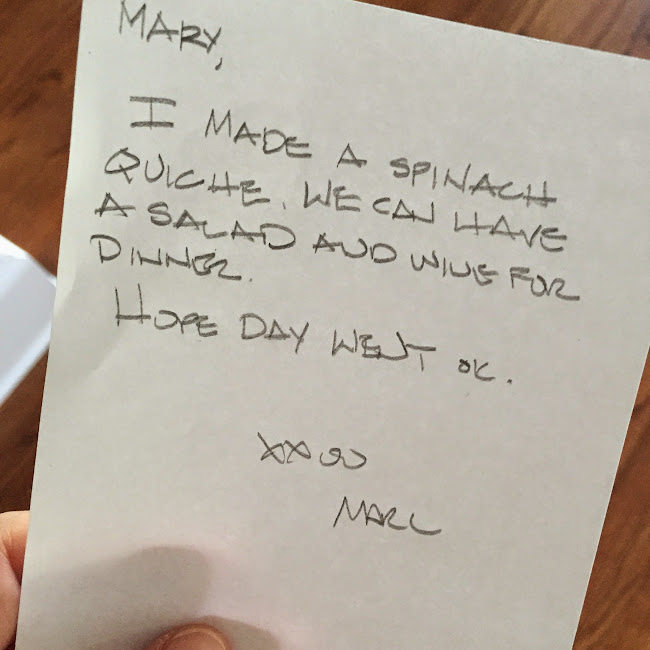 MARY,
I MADE A SPINACH
QUICHE. WE CAN HAVE
A SALAD AND WINE FOR
DINNER.
HOPE DAY WENT OK.
XXOO
MARC